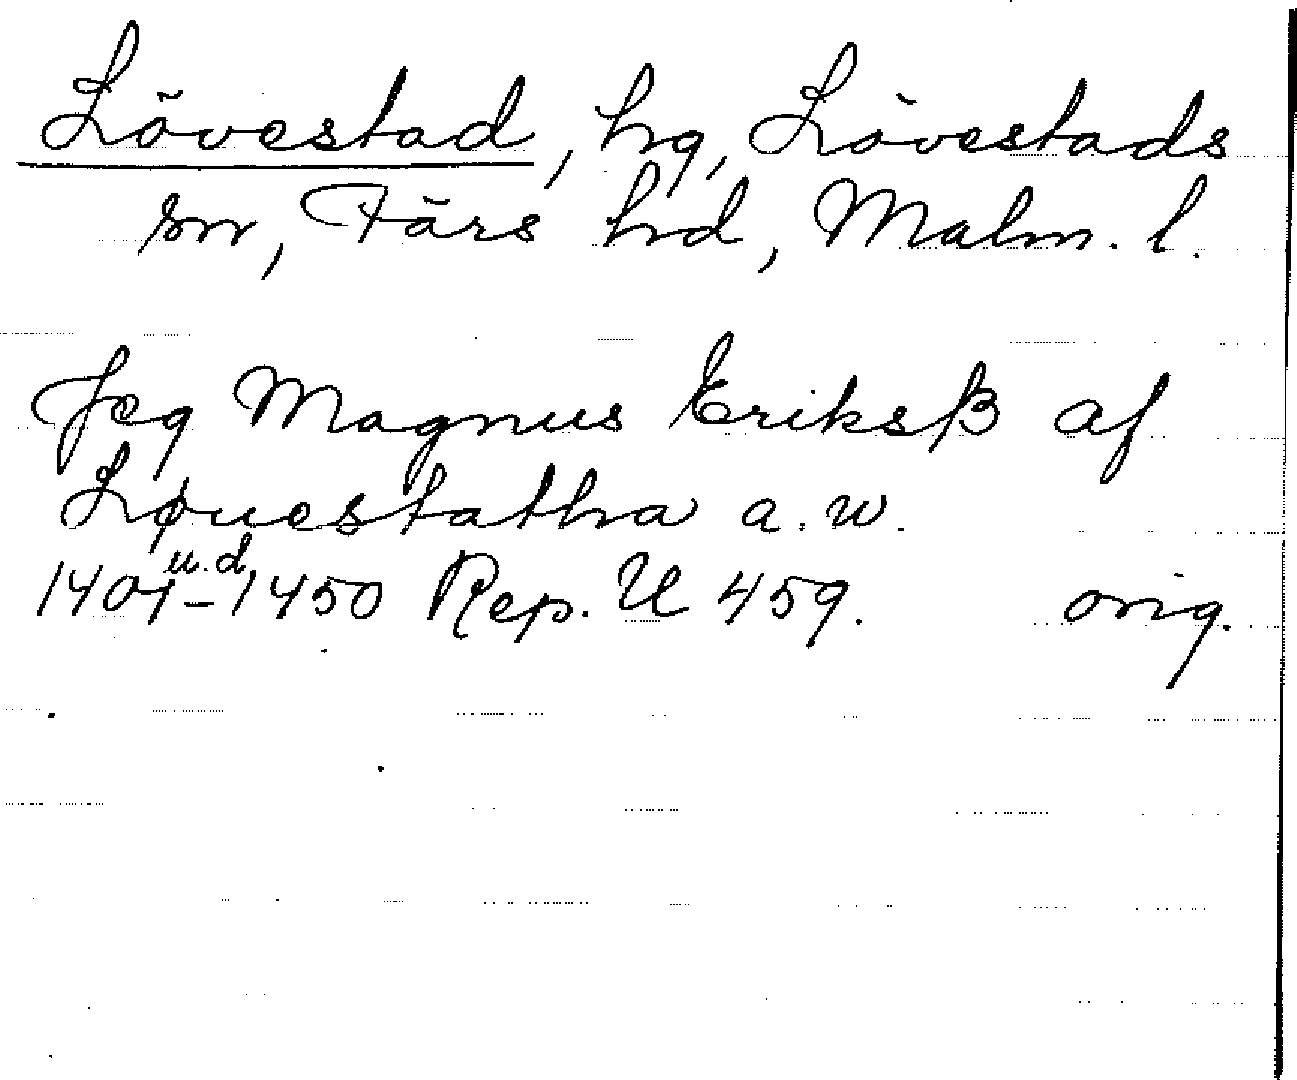 Lövestad, hg, Lövestads
sn, Färs hd, Malm. l.
Jeg Magnus Eriksß af
Løuestatha a. w.
1401-1450 u.d. Rep. II 459. orig.